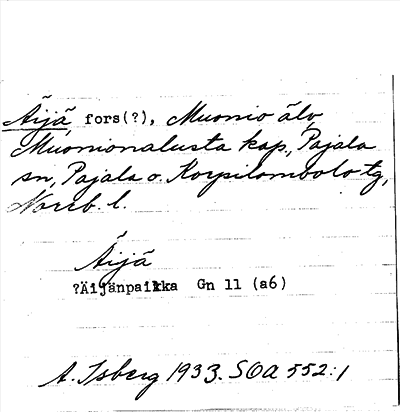 Äijä, fors(?), Muonio älv
Muonionalusta kap., Pajala
sn, Pajala o. Korpilombolo tg,
Norrb. l.
Äijä
?Äijänpaikka Gn 11 (a6)
A. Isberg 1933. SOA 552:1